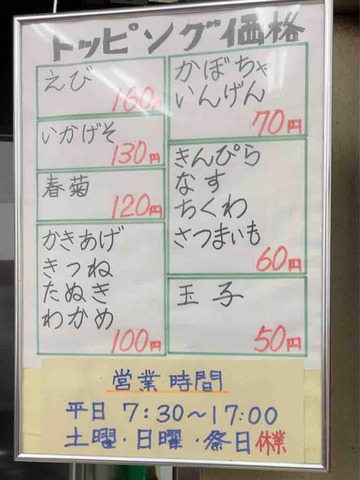 トッピング価格
えび
160円
いかげそ
130円
春菊
120円
かきあげ
きつね
たぬき
わかめ
100円
かぼちゃ
いんげん
70円
きんぴら
なす
ちくわ
さつまいも
60円
玉子
50円
営業時間
平日 7:30～17:00
土曜・日曜・祭日休業